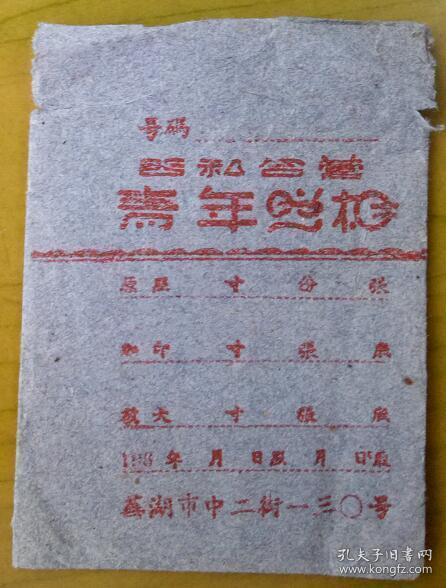 号码
公私合营
青年照相
原 寸 份 张
加印 寸 张 底
放大 寸 张 底
年 月 日 月 日取
蕪湖市中二街一三〇号
孔夫子旧书网
www.kongfz.com